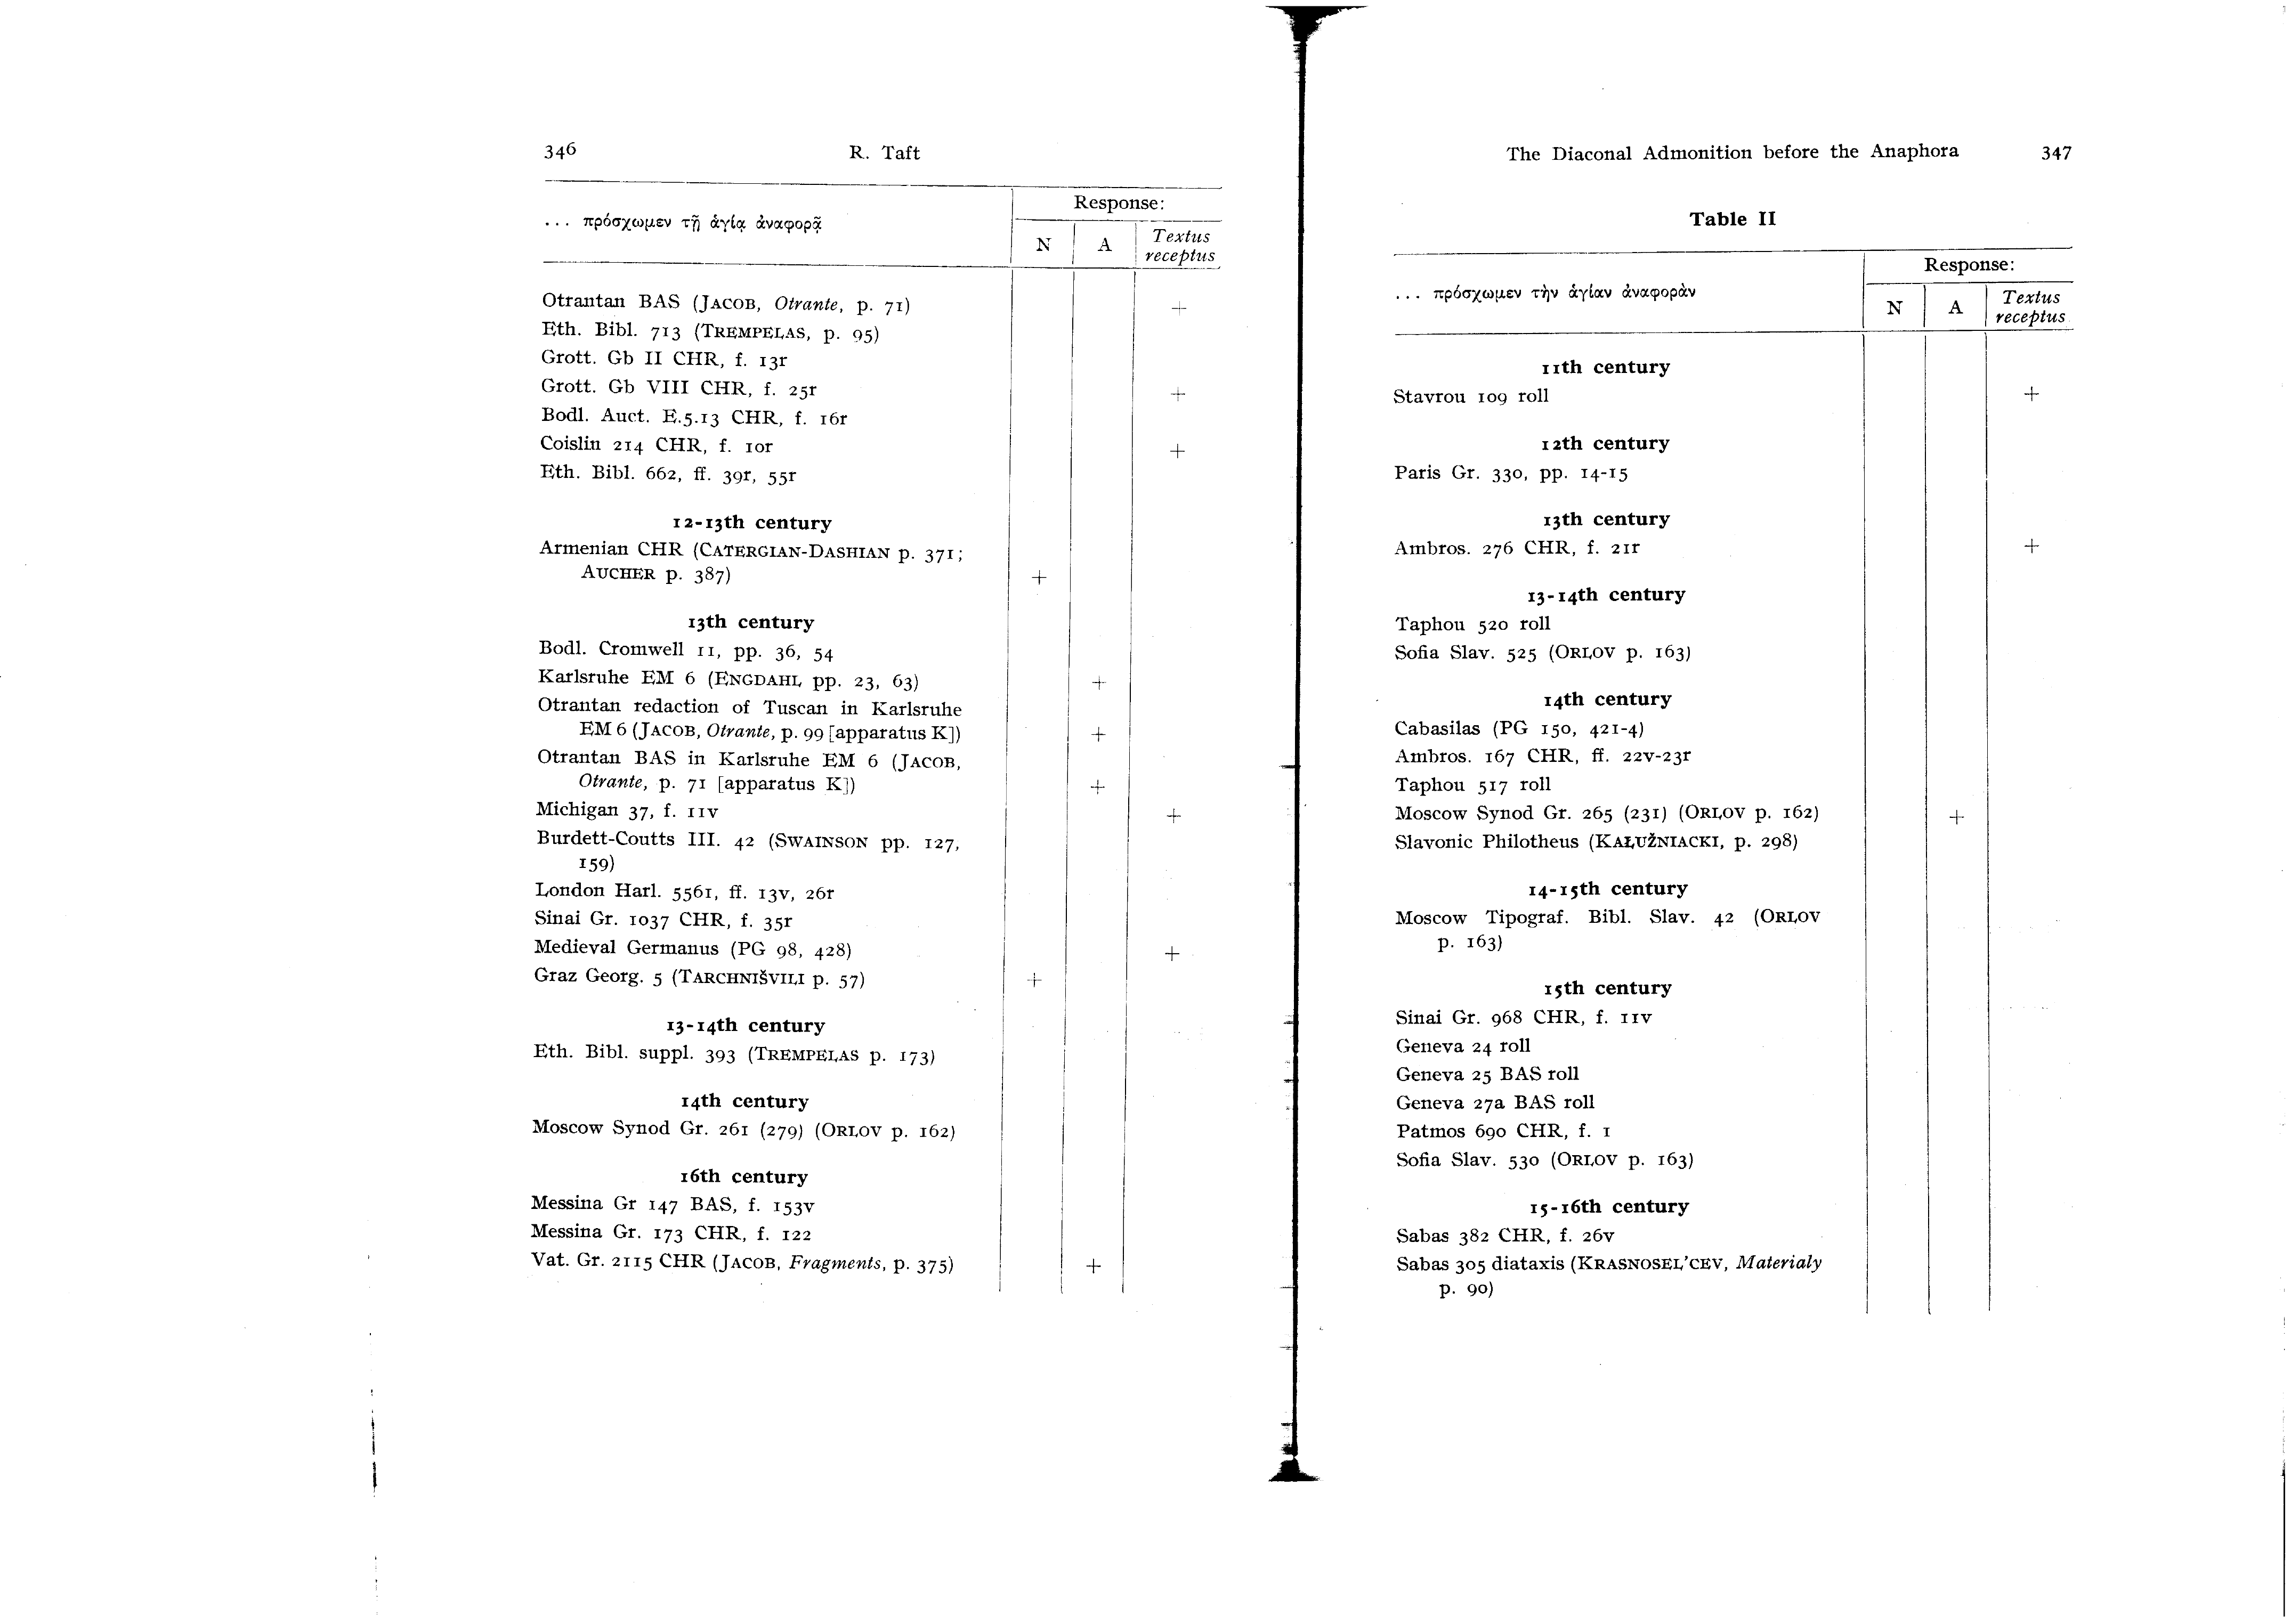 346 R. Taft
... πρόσχωμεν τῇ ἁγίᾳ ἀναφορᾷ
Response:
N A Textus receptus
Otrantan BAS (JACOB, Otrante, p. 71) +
Eth. Bibl. 713 (TREMPELAS, p. 95)
Grott. Gb II CHR, f. 13r
Grott. Gb VIII CHR, f. 25r +
Bodl. Auct. E.5.13 CHR, f. 16r
Coislin 214 CHR, f. 10r +
Eth. Bibl. 662, ff. 39r, 55r
12-13th century
Armenian CHR (CATERGIAN-DASHIAN p. 371;
AUCHER p. 387) +
13th century
Bodl. Cromwell 11, pp. 36, 54
Karlsruhe EM 6 (ENGDAHL pp. 23, 63) +
Otrantan redaction of Tuscan in Karlsruhe
EM 6 (JACOB, Otrante, p. 99 [apparatus K]) +
Otrantan BAS in Karlsruhe EM 6 (JACOB,
Otrante, p. 71 [apparatus K]) +
Michigan 37, f. 11v +
Burdett-Coutts III. 42 (SWAINSON pp. 127,
159)
London Harl. 5561, ff. 13v, 26r
Sinai Gr. 1037 CHR, f. 35r
Medieval Germanus (PG 98, 428) +
Graz Georg. 5 (TARCHNIŠVILI p. 57) +
13-14th century
Eth. Bibl. suppl. 393 (TREMPELAS p. 173)
14th century
Moscow Synod Gr. 261 (279) (ORLOV p. 162)
16th century
Messina Gr 147 BAS, f. 153v
Messina Gr. 173 CHR, f. 122
Vat. Gr. 2115 CHR (JACOB, Fragments, p. 375) +
The Diaconal Admonition before the Anaphora 347
Table II
... πρόσχωμεν τὴν ἁγίαν ἀναφορὰν
Response:
N A Textus receptus
11th century
Stavrou 109 roll +
12th century
Paris Gr. 330, pp. 14-15
13th century
Ambros. 276 CHR, f. 21r +
13-14th century
Taphou 520 roll
Sofia Slav. 525 (ORLOV p. 163)
14th century
Cabasilas (PG 150, 421-4)
Ambros. 167 CHR, ff. 22v-23r
Taphou 517 roll
Moscow Synod Gr. 265 (231) (ORLOV p. 162) +
Slavonic Philotheus (KAŁUŽNIACKI, p. 298)
14-15th century
Moscow Tipograf. Bibl. Slav. 42 (ORLOV
p. 163)
15th century
Sinai Gr. 968 CHR, f. 11v
Geneva 24 roll
Geneva 25 BAS roll
Geneva 27a BAS roll
Patmos 690 CHR, f. 1
Sofia Slav. 530 (ORLOV p. 163)
15-16th century
Sabas 382 CHR, f. 26v
Sabas 305 diataxis (KRASNOSEL'CEV, Materialy
p. 90)